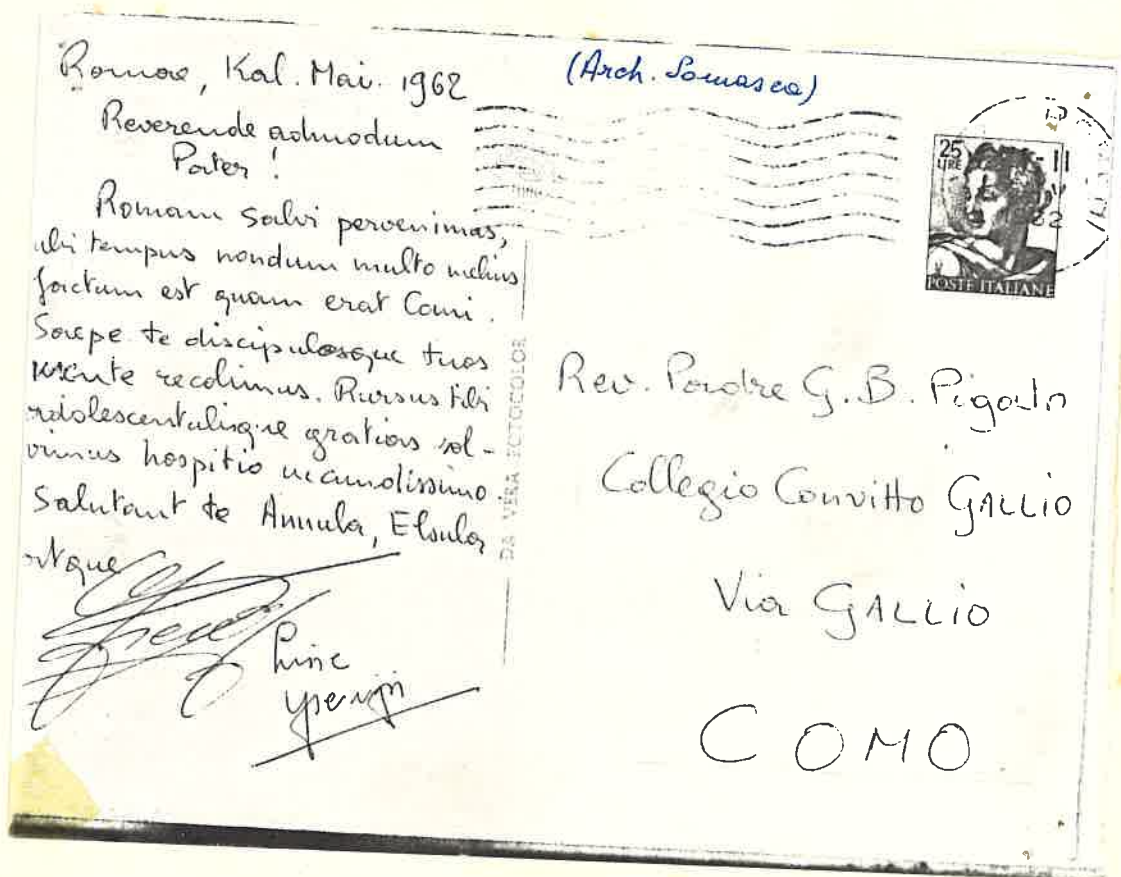 Romae, Kal. Mai. 1962
Reverende admodum
Pater!
Romam salvi pervenimus,
ubi tempus nondum multo melius
factum est quam erat Comi.
Saepe te discipulosque tuos
mente recolimus. Rursus tibi
adolescentulisque gratias sol-
vimus hospitio iucundissimo.
Salutant te Annula, Elsula
atque
(Arch. Somasca)
25
LIRE
POSTE ITALIANE
DA VERA FOTOCOLOR
Rev. Padre G. B. Pigato
Collegio Convitto GALLIO
Via GALLIO
COMO